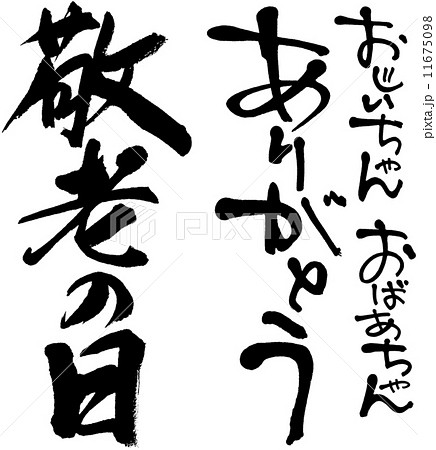 おじいちゃん おばあちゃん
ありがとう
敬老の日
PIXTA
pixta.jp - 11675098